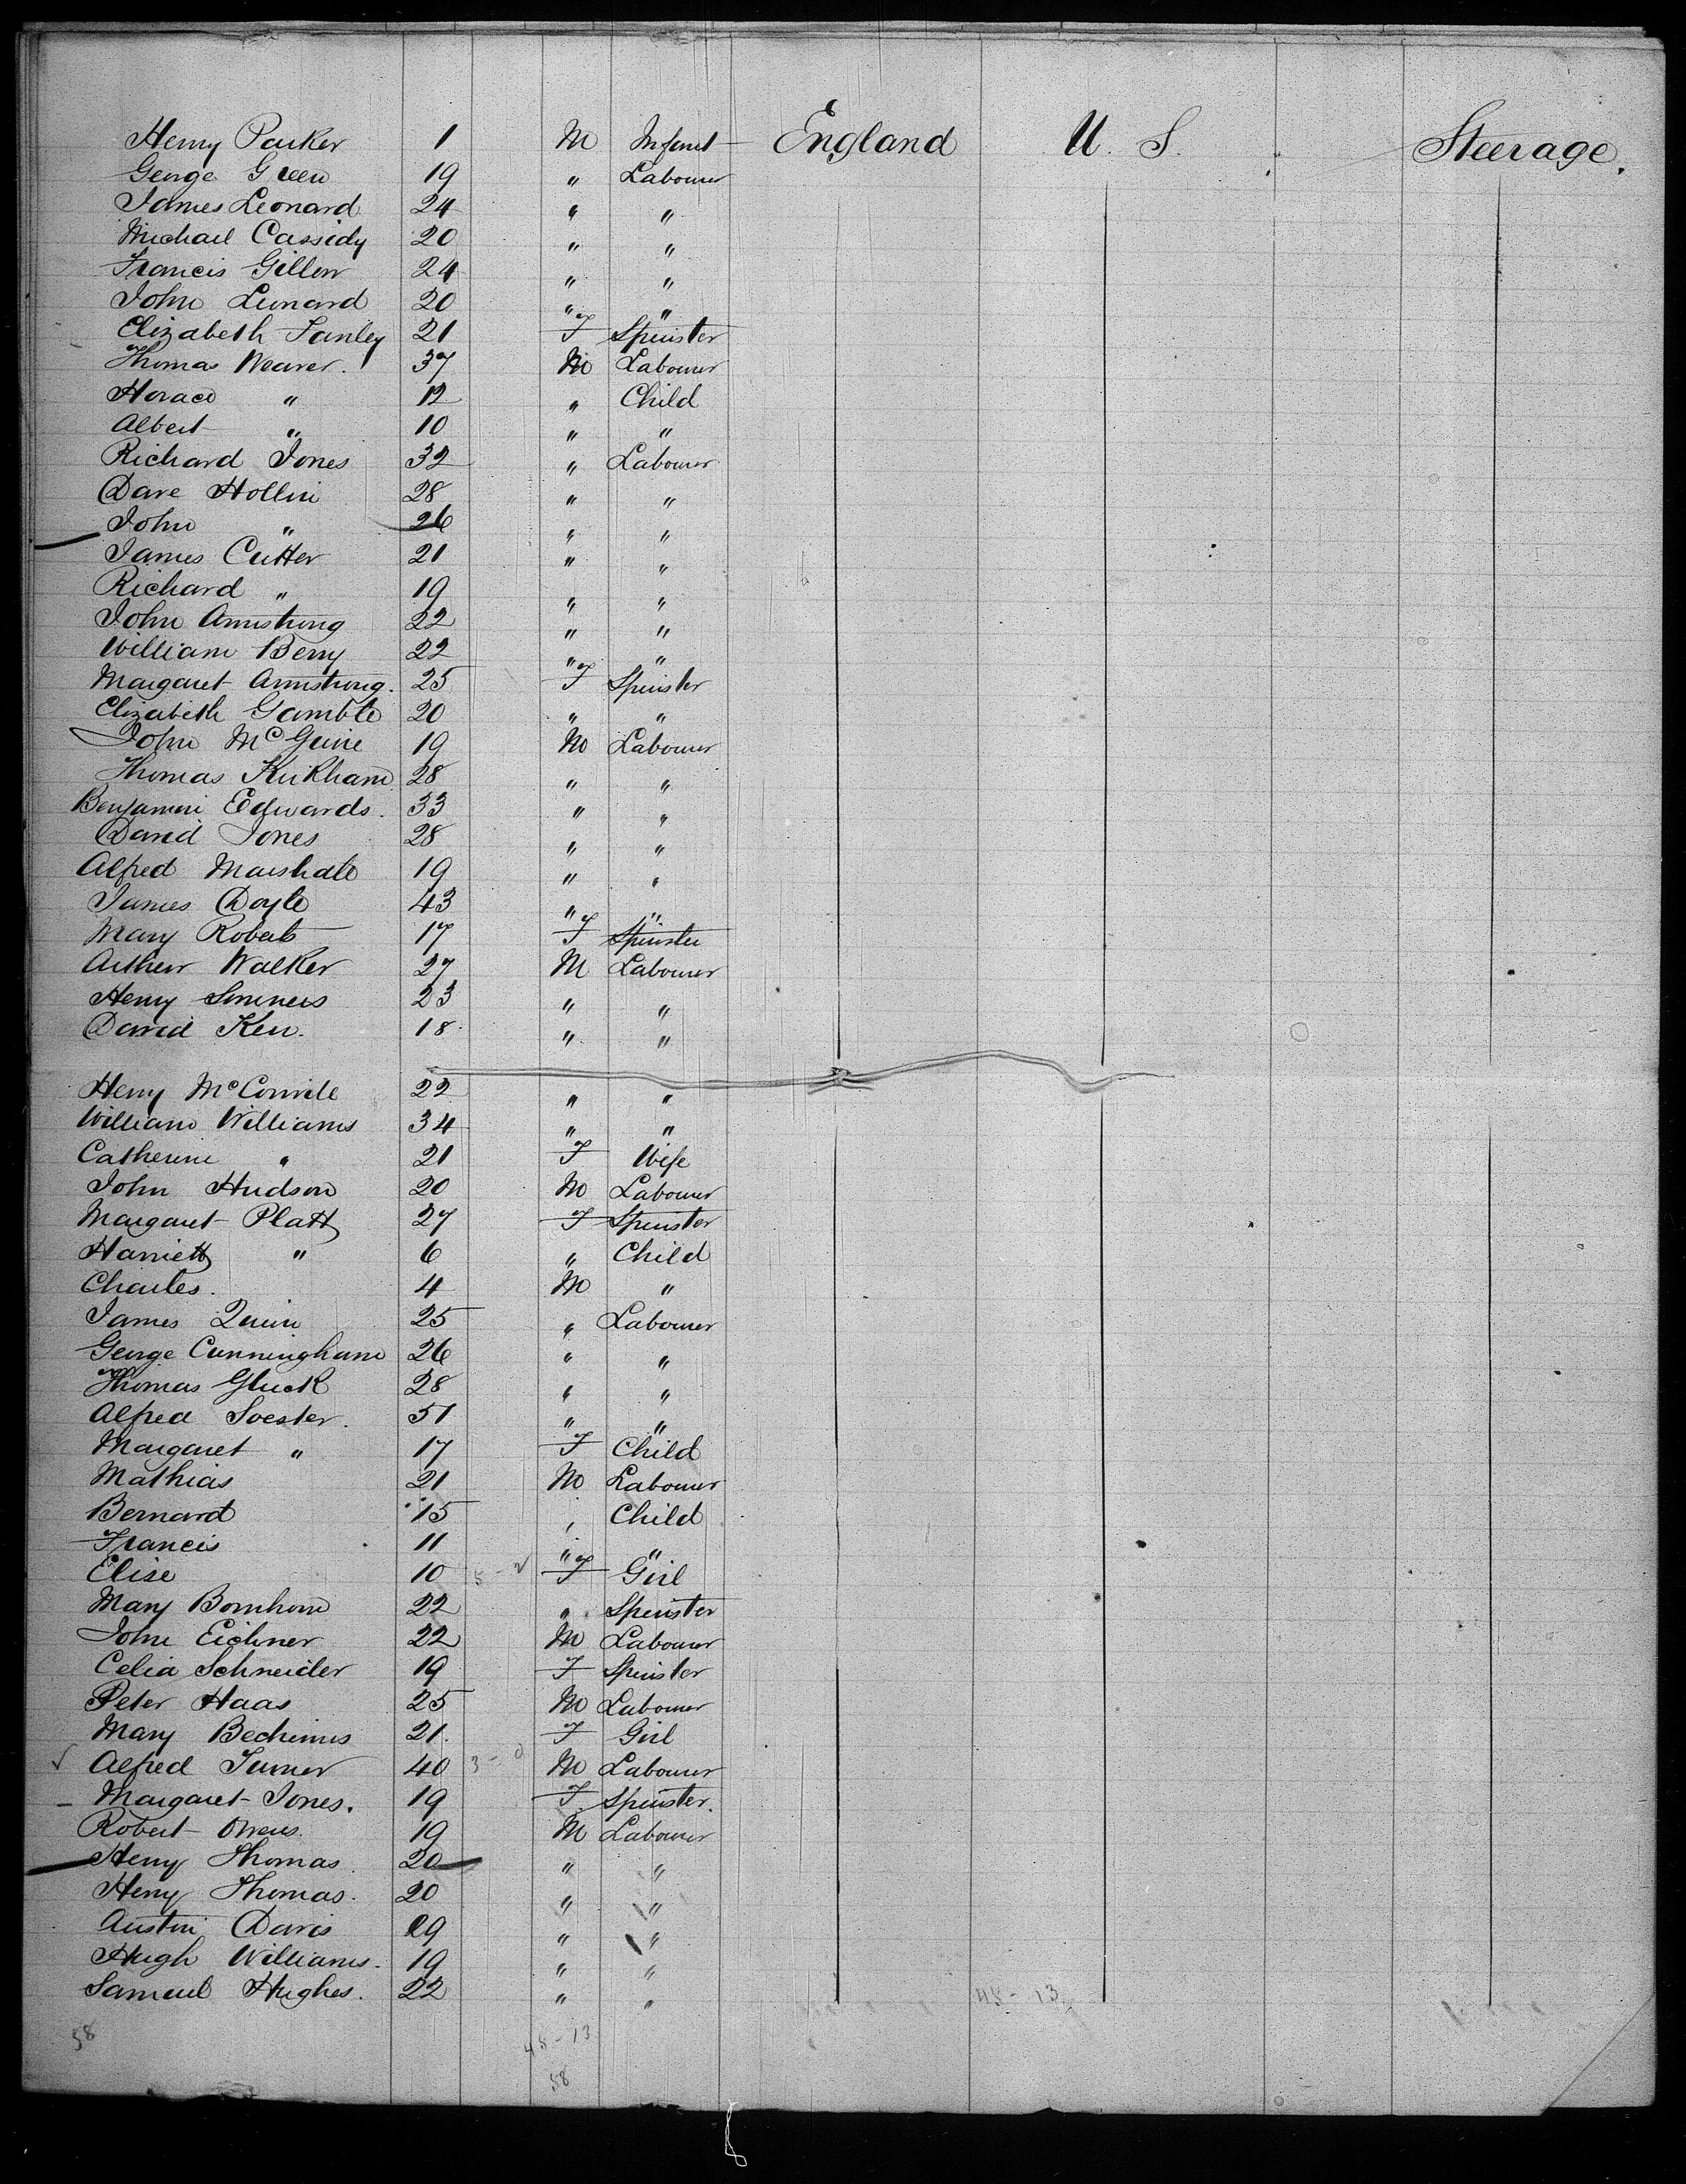 Henry Parker 1 M Infant England U. S. Steerage.
George Green 19 " Labourer
James Leonard 24 " "
Michael Cassidy 20 " "
Francis Gillon 24 " "
John Leonard 20 " "
Elizabeth Fanley 21 F Spinster
Thomas Weaver. 37 M Labourer
Horace " 12 " Child
Albert " 10 " "
Richard Jones 32 " Labourer
Dave Hollin 28 " "
John " 26 " "
James Cutter 21 " "
Richard " 19 " "
John Armstrong 22 " "
William Berry 22 " "
Margaret Armstrong. 25 F Spinster
Elizabeth Gamble 20 " "
John McGuire 19 M Labourer
Thomas Kirkham 28 " "
Benjamin Edwards. 33 " "
David Jones 28 " "
Alfred Marshall 19 " "
James Doyle 43 " "
Mary Roberts 17 F Spinster
Arthur Walker 27 M Labourer
Henry Somners 23 " "
David Kerr. 18 " "
Henry McConvile 22 " "
William Williams 34 " "
Catherine " 21 F Wife
John Hudson 20 M Labourer
Margaret Platt 27 F Spinster
Harriett " 6 " Child
Charles. 4 M "
James Quinn 25 " Labourer
George Cunningham 26 " "
Thomas Gluck 28 " "
Alfred Soester. 51 " "
Margaret " 17 F Child
Mathias 21 M Labourer
Bernard 15 " Child
Francis 11 " "
Elise 10 F Girl
Mary Bornhom 22 " Spinster
John Eichner 22 M Labourer
Celia Schneider 19 F Spinster
Peter Haas 25 M Labourer
Mary Bechimus 21. F Girl
Alfred Turner 40 3 - 0 M Labourer
Margaret Jones. 19 F Spinster.
Robert Owens. 19 M Labourer
Henry Thomas. 20 " "
Henry Thomas. 20 " "
Austin Davis 19 " "
Hugh Williams. 19 " "
Samuel Hughes. 22 " "
45 - 13
58 45 - 13
58
8